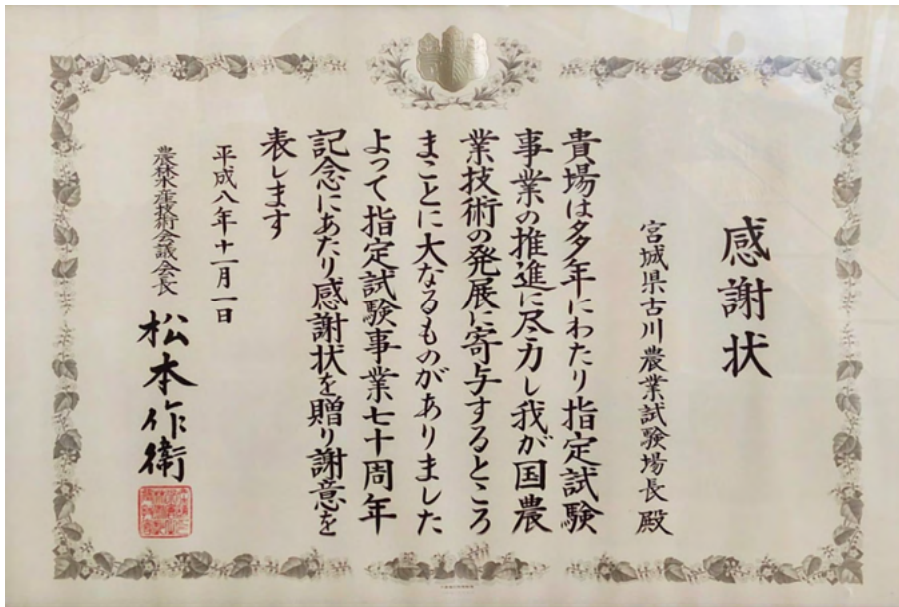 感謝状
宮城県古川農業試験場長 殿
貴場は多年にわたり指定試験
事業の推進に尽力し我が国農
業技術の発展に寄与するところ
まことに大なるものがありました
よって指定試験事業七十周年
記念にあたり感謝状を贈り謝意を
表します
平成八年十一月一日
農林水産技術会議会長
松本作衛